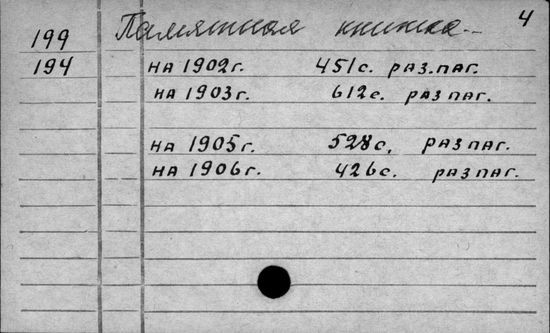 4
199 Памятная книжка...
194 на 1902г. 451с. раз.паг.
на 1903г. 612с. раз паг.
на 1905г. 528с. раз паг.
на 1906г. 426с. раз паг.